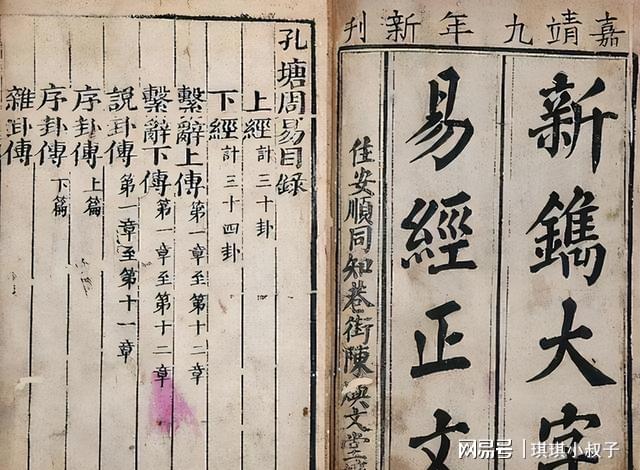 嘉靖九年新刊
新鐫大字
易經正文
佳安順同知巷街陳煥文堂
孔塘周易目錄
上經 計三十卦
下經 計三十四卦
繫辭上傳 第一章至第十二章
繫辭下傳 第一章至第十二章
說卦傳 第一章至第十一章
序卦傳 上篇
序卦傳 下篇
雜卦傳
网易号 | 琪琪小叔子